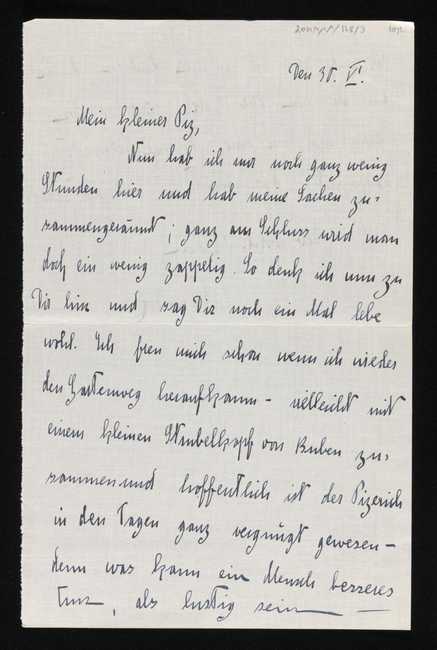 Den 30. VI.
Mein kleiner Piz,
Nun hab ich nur noch ganz wenig
Stunden hier und hab meine Sachen zu-
sammengeräumt; ganz am Schluss wird man
doch ein wenig zappelig. So denk ich nun zu
Dir hin und sag Dir noch ein Mal lebe
wohl. Ich freu mich schon wenn ich wieder
den Gartenweg heraufkomm – vielleicht mit
einem kleinen Strubelkopf von Buben zu-
sammen und hoffentlich ist der Pizerich
in den Tagen ganz vergnügt gewesen –
denn was kann ein Mensch besseres
tun, als lustig sein —